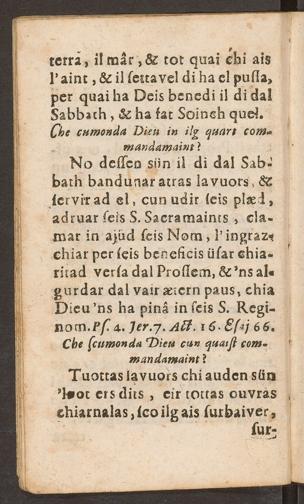 terrâ, il mâr, & tot quai chi ais
l'aint, & il settavel di ha el pussa,
per quai ha Deis benedi il di dal
Sabbath, & ha fat Soinch quel.
Che cumonda Dieu in ilg quart com-
mandamaint?
No dessen sün il di dal Sab-
bath bandunar atras lavuors, &
servir ad el, cun udir seis plæd,
adruar seis S. Sacramaints, cla-
mar in ajüd seis Nom, l'ingraz-
chiar per seis beneficis üsar chia-
ritad versa dal Prossem, & 'ns al-
gurdar dal vair ætern paus, chia
Dieu 'ns ha pinâ in seis S. Regi-
nom. Ps. 4. Jer. 7. Act. 16. Esaj 66.
Che scumonda Dieu cun quaist com-
mandamaint?
Tuottas lavuors chi auden sün
'lvot ers dits, eir tottas ouvras
chiarnalas, sco ilg ais surbaiver,
sur-